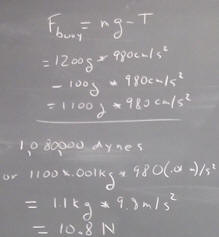 F buoy = mg - T
= 1200g * 980cm/s²
- 100g * 980cm/s²
= 1100g * 980cm/s²
1,080,000 dynes
or 1100 * .001kg * 980(.01m)/s²
= 1.1kg * 9.8m/s²
= 10.8 N